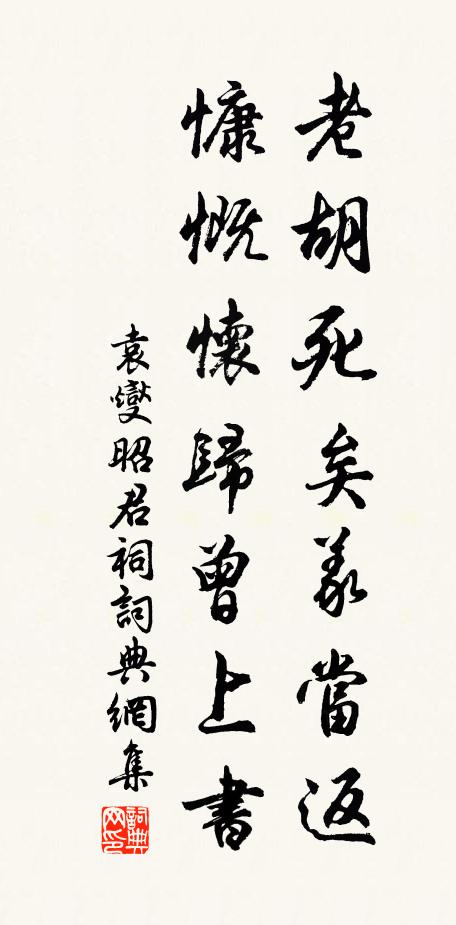 老胡死矣義當返
慷慨懷歸曾上書
袁燮昭君祠詞典網集
詞典網印